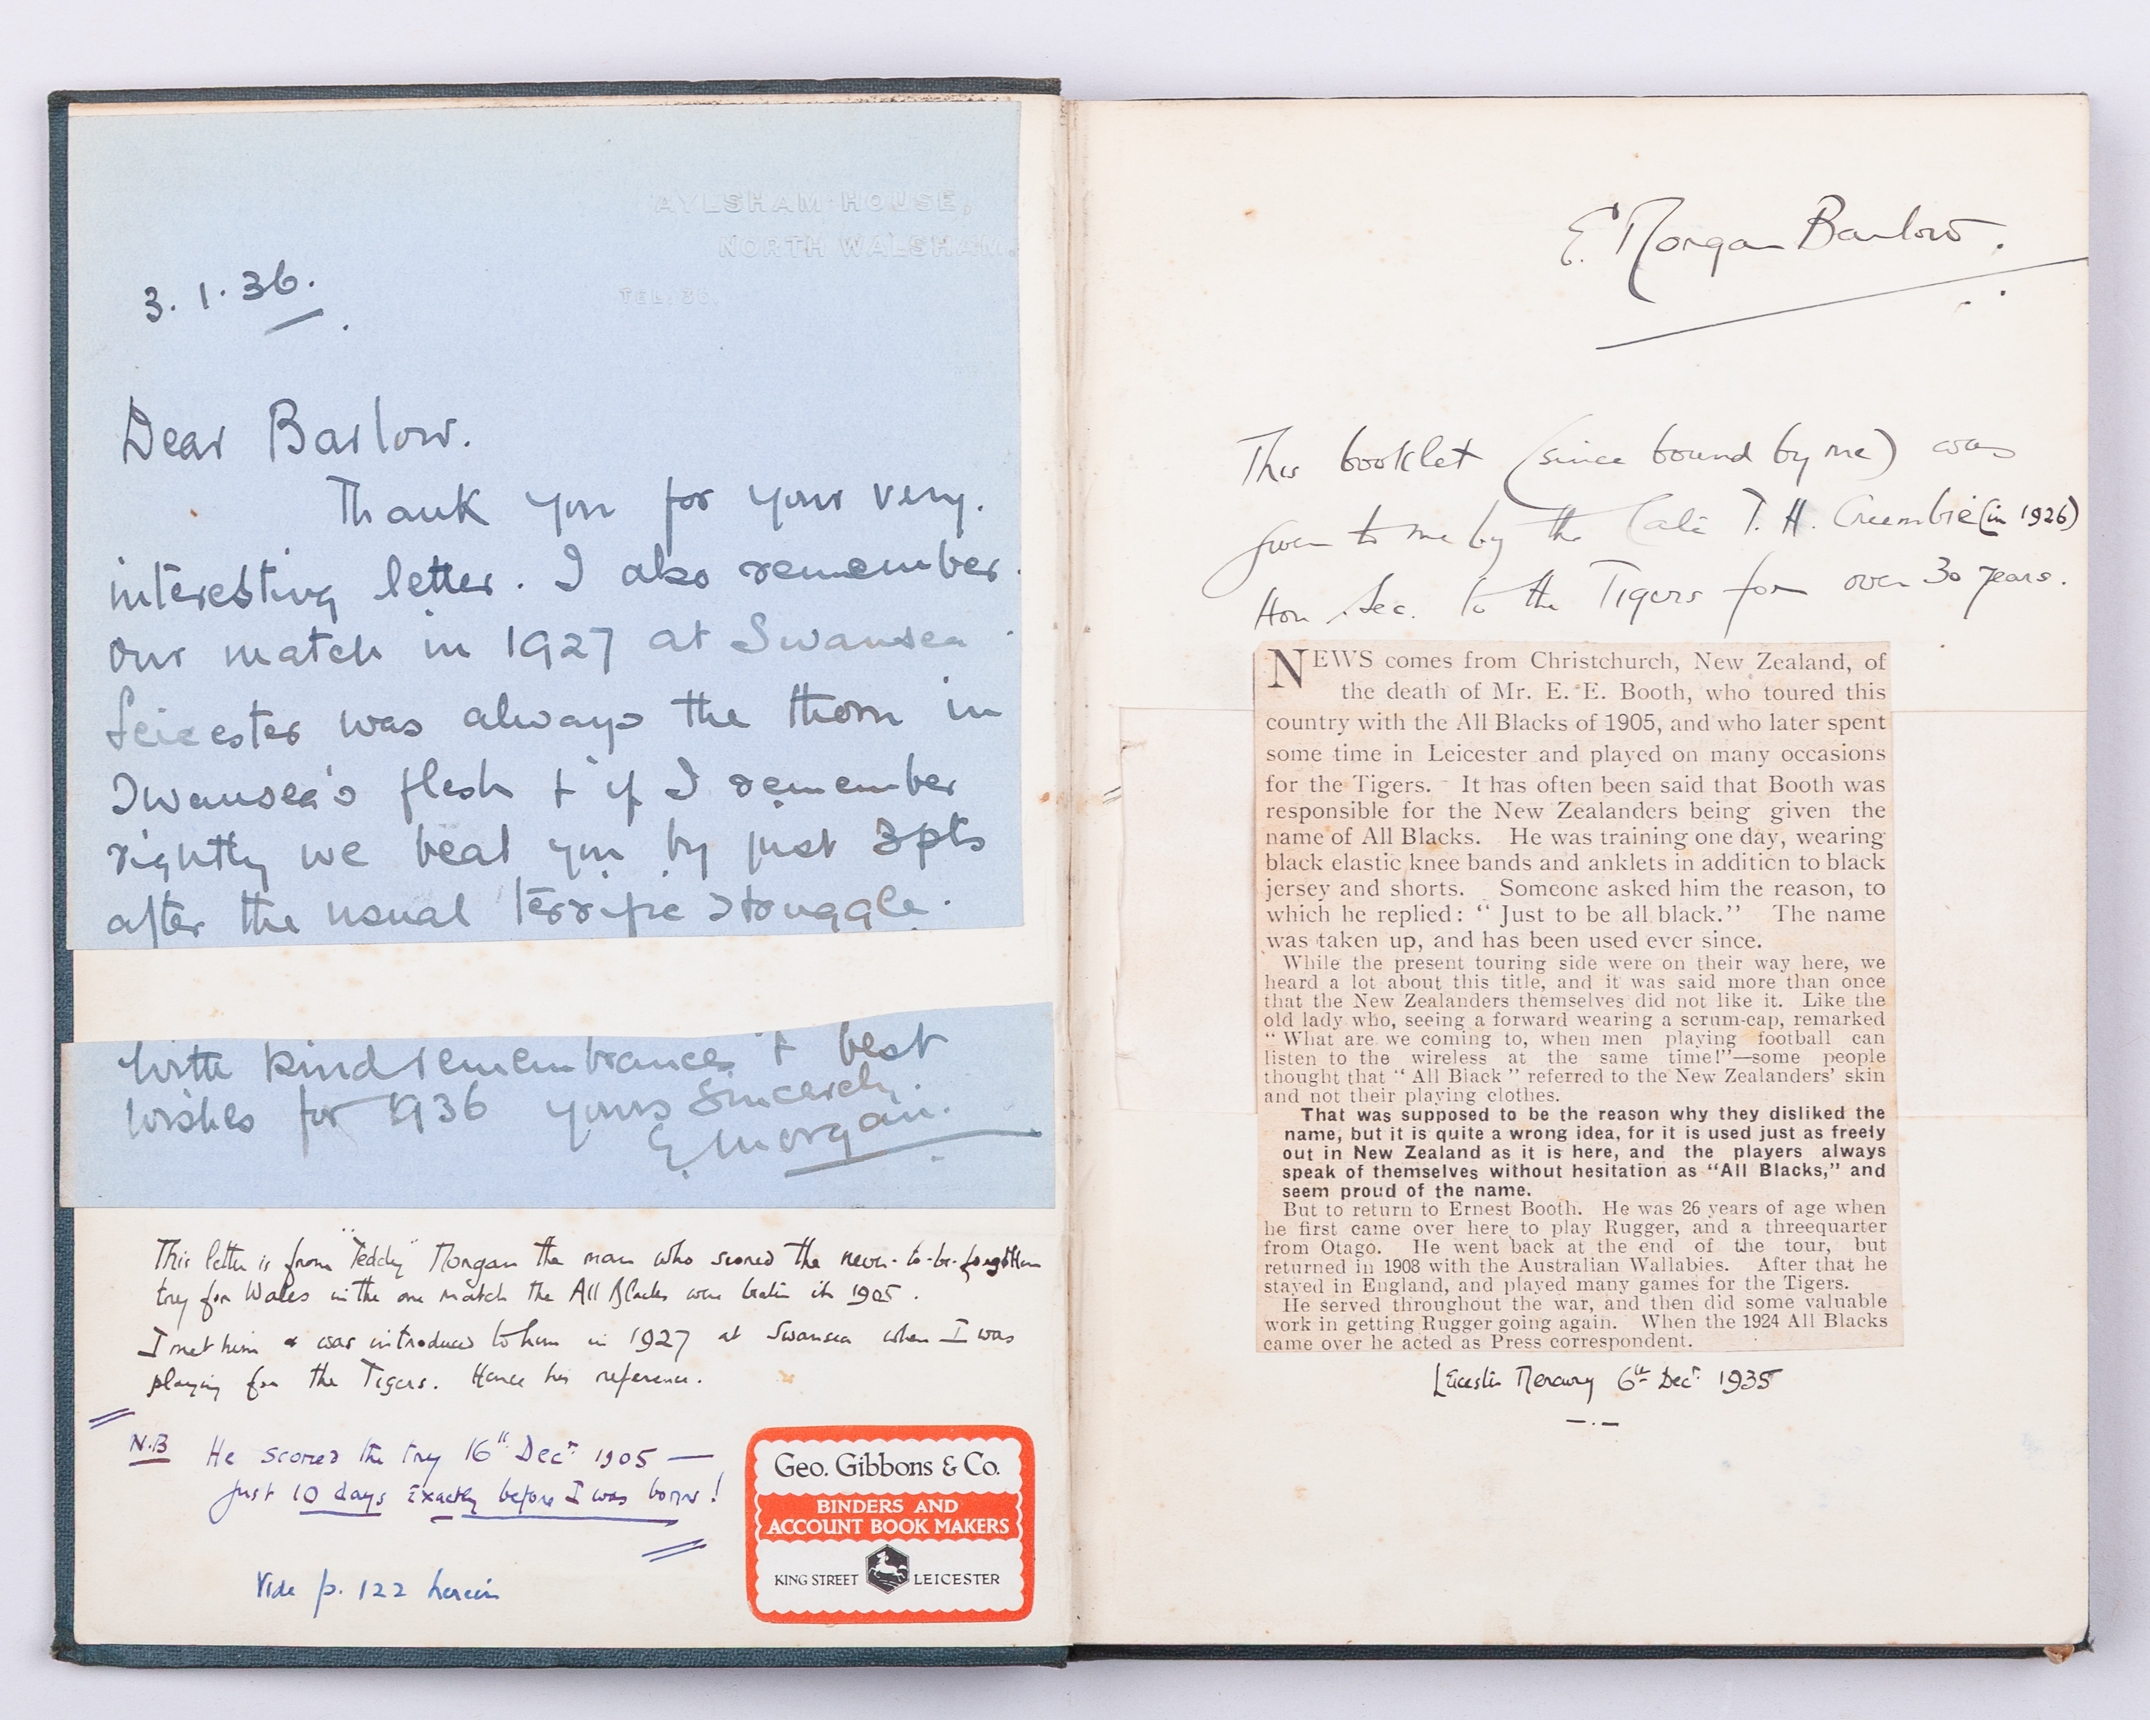 AYLSHAM HOUSE,
NORTH WALSHAM.
TEL. 36.
3.1.36.
Dear Barlow.
Thank you for your very.
interesting letter. I also remember.
our match in 1927 at Swansea
Leicester was always the thorn in
Swansea's flesh & if I remember
rightly we beat you by just 3pts
after the usual terrific struggle.
With kind remembrances & best
wishes for 1936 yours Sincerely.
E. Morgan.
This letter is from "Teddy" Morgan the man who scored the never-to-be-forgotten
try for Wales in the one match the All Blacks were beaten in 1905.
I met him & was introduced to him in 1927 at Swansea when I was
playing for the Tigers. Hence his reference.
N.B He scored the try 16th Decr 1905 —
just 10 days exactly before I was born!
Vide p. 122 herein
Geo. Gibbons & Co.
BINDERS AND
ACCOUNT BOOK MAKERS
KING STREET LEICESTER
E. Morgan Barlow.
This booklet (since bound by me) was
given to me by the late T. H. Crumbie (in 1926)
Hon. Sec. to the Tigers for over 30 years.
NEWS comes from Christchurch, New Zealand, of
the death of Mr. E. E. Booth, who toured this
country with the All Blacks of 1905, and who later spent
some time in Leicester and played on many occasions
for the Tigers. It has often been said that Booth was
responsible for the New Zealanders being given the
name of All Blacks. He was training one day, wearing
black elastic knee bands and anklets in addition to black
jersey and shorts. Someone asked him the reason, to
which he replied: "Just to be all black." The name
was taken up, and has been used ever since.
While the present touring side were on their way here, we
heard a lot about this title, and it was said more than once
that the New Zealanders themselves did not like it. Like the
old lady who, seeing a forward wearing a scrum-cap, remarked
"What are we coming to, when men playing football can
listen to the wireless at the same time!"—some people
thought that "All Black" referred to the New Zealanders' skin
and not their playing clothes.
That was supposed to be the reason why they disliked the
name, but it is quite a wrong idea, for it is used just as freely
out in New Zealand as it is here, and the players always
speak of themselves without hesitation as "All Blacks," and
seem proud of the name.
But to return to Ernest Booth. He was 26 years of age when
he first came over here to play Rugger, and a threequarter
from Otago. He went back at the end of the tour, but
returned in 1908 with the Australian Wallabies. After that he
stayed in England, and played many games for the Tigers.
He served throughout the war, and then did some valuable
work in getting Rugger going again. When the 1924 All Blacks
came over he acted as Press correspondent.
Leicester Mercury 6th Decr 1935